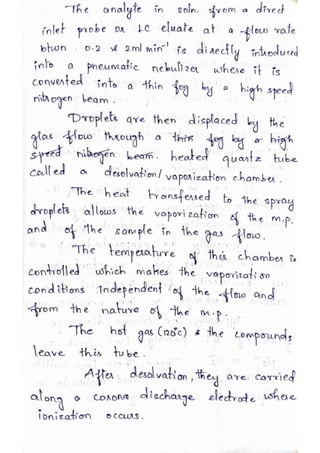 The analyte in soln. from a direct
inlet probe or LC eluate at a flow rate
btwn 0.2 & 2ml min⁻¹ is directly introduced
into a pneumatic nebulizer where it is
converted into a thin fog by a high speed
nitrogen beam.
Droplets are then displaced by the
glas flow through a thin fog by a high
speed nitrogen beam. heated quartz tube
called a desolvation/vaporization chamber.
The heat transferred to the spray
droplets allows the vaporization of the m.p.
and of the sample in the gas flow.
The temperature of this chamber is
controlled which makes the vaporization
conditions independent of the flow and
from the nature of the m.p.
The hot gas (120°c) & the compounds
leave this tube.
After desolvation, they are carried
along a corona discharge electrode where
ionization occurs.